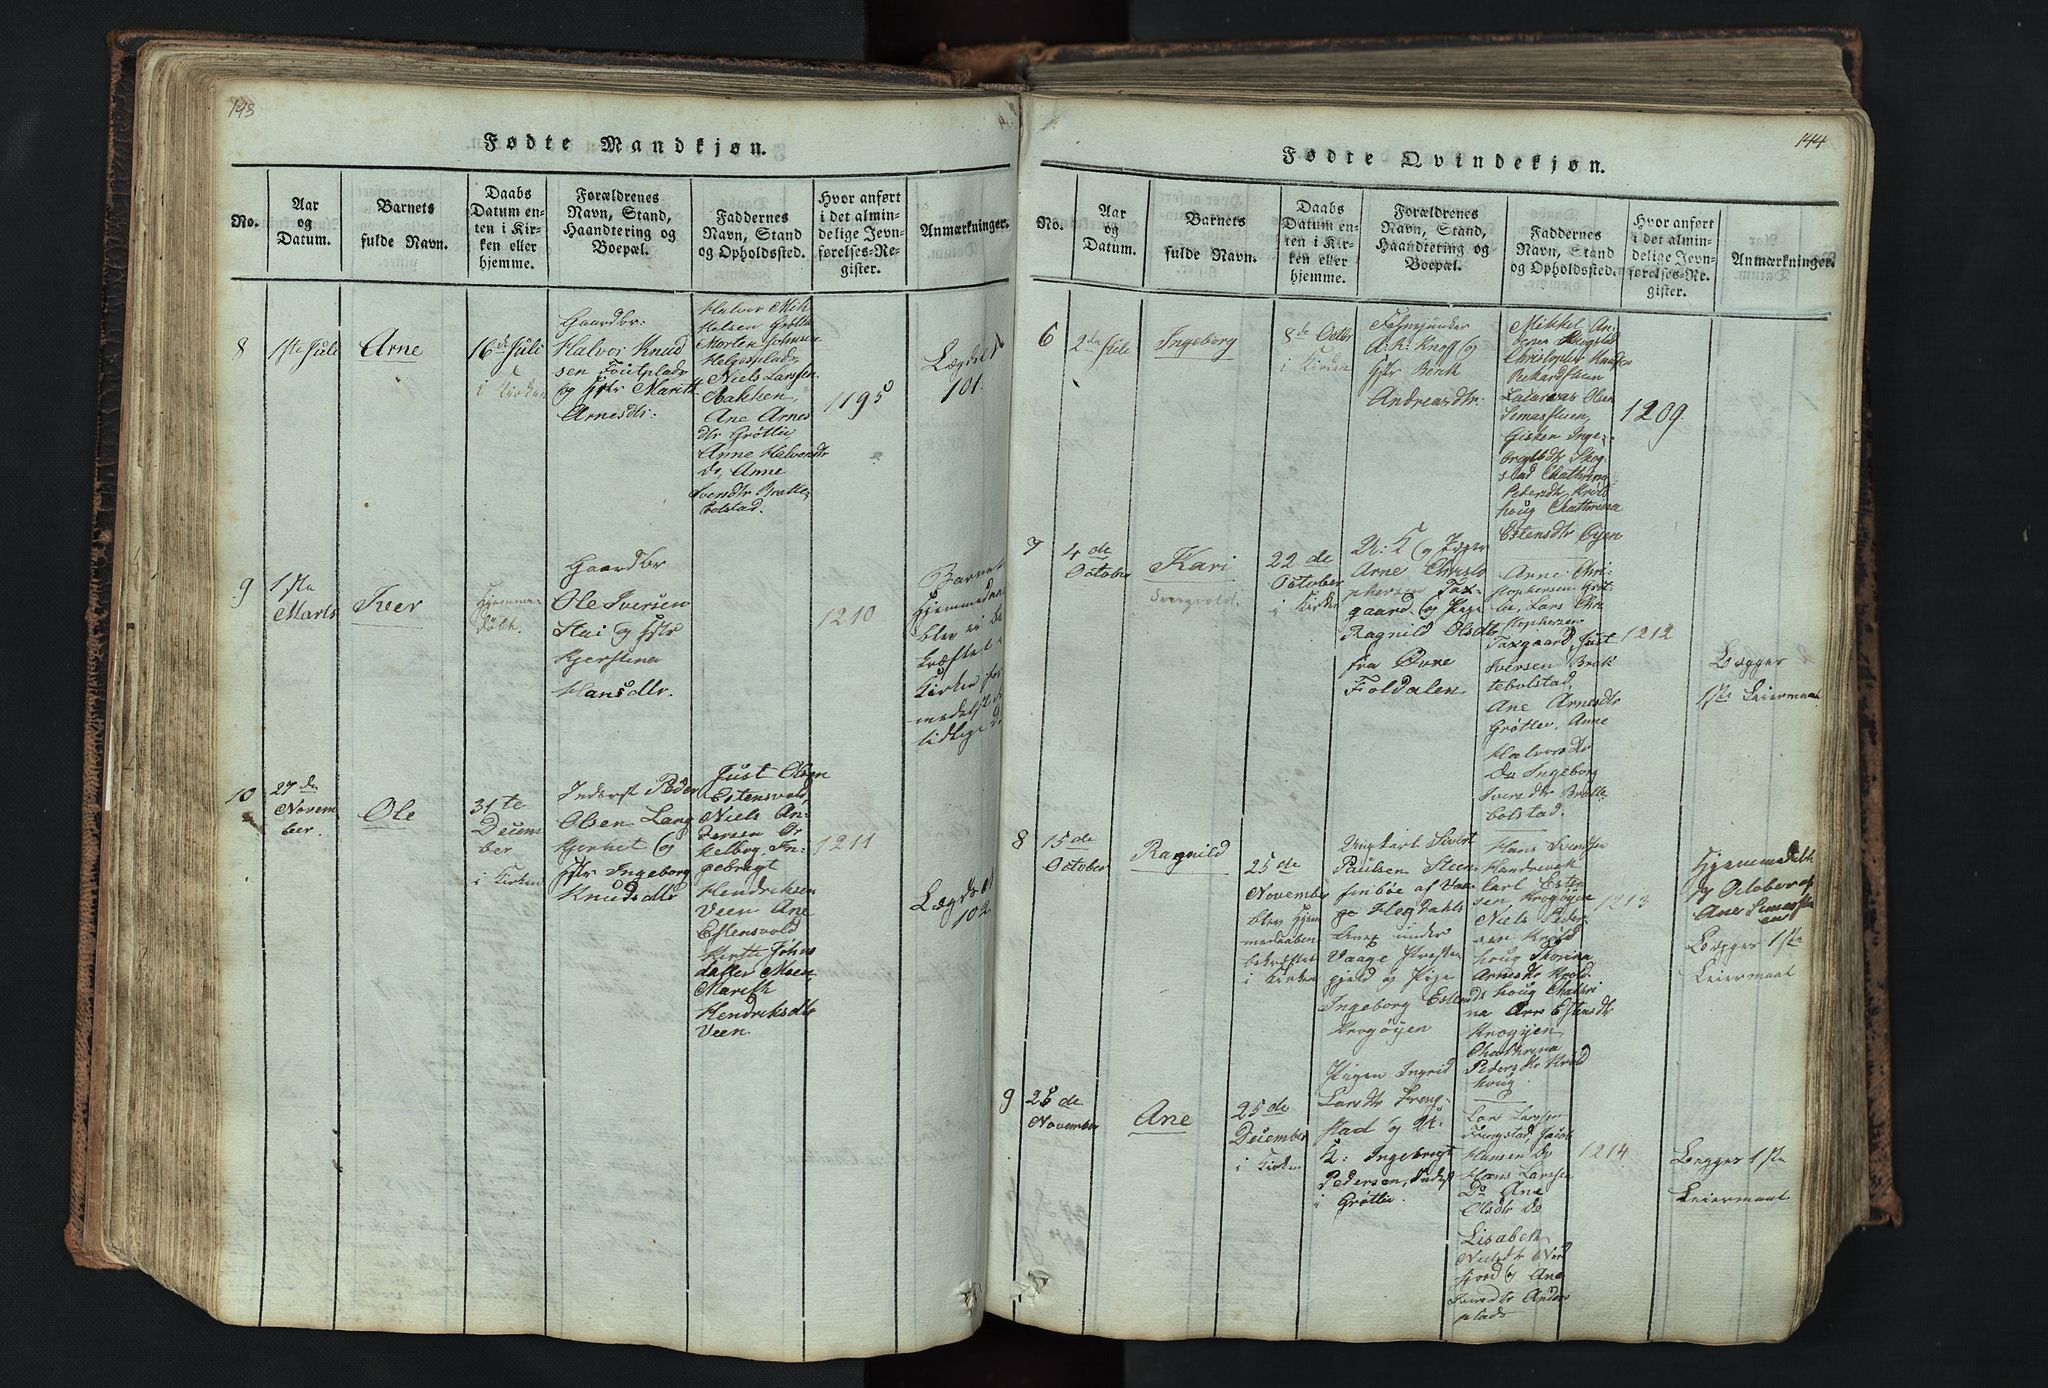 143
Fødte Mandkjøn.
No.
Aar
og
Datum.
Barnets
fulde Navn.
Daabs
Datum en-
ten i Kir-
ken eller
hjemme.
Forældrenes
Navn, Stand,
Haandtering og
Boepæl.
Faddernes
Navn, Stand
og Opholdssted.
Hvor anført
i det almin-
delige Jevn-
førelses-Re-
gister.
Anmærkninger.
8
1ste Juli
Arne
16de Juli
i Kirken
Gaardbr:
Halvor Knud
sen
og Hstr Marith
Arnesdtr:
Halvor Mik
kelsen Grøtlie
Morten Johnsen
Helgasplads
Niels Larssen
Bakken,
Ane Arnes
dtr Grøtlie
Anne Halvorsdtr
do, Anne
Iversdtr Brakte,
bolstad.
1195
101.
9
1ste
Marts
Iver
Hjemme
døbt.
Gaardbr
Ole Iversen
og Hstr
Kjerstina
Hansdtr.
1210
Barnet
blev ei be
kræftet i
Kirken for
medelst
tidlige
10
27de
Novem
ber.
Ole
31te
Decem
ber
i Kirken
Inderst Peder
Olsen Lang
kjerket og
Hstr Ingeborg
Knudsdtr
Just Olsen
Estensvold,
Niels An
dersen
In-
gebrigt
Hendriksen
Veen Ane
Estensvold
Johns
datter Moen
Marith
Hendriksdtr
Veen.
1211
102
144
Fødte Qvindekjøn.
No.
Aar
og
Datum.
Barnets
fulde Navn.
Daabs
Datum en-
ten i Kir-
ken eller
hjemme.
Forældrenes
Navn, Stand,
Haandtering og
Boepæl.
Faddernes
Navn, Stand
og Opholdssted.
Hvor anført
i det almin-
delige Jevn-
førelses-Re-
gister.
Anmærkninger.
6
2den Juli
Ingeborg
8de Octbr
i Kirken
Fahnejunker
A: R: Knoff og
Hstr Berit
Andreasdtr:
Mikkel An-
dersen
Christopher Knudsen
Lazarus Olsen
Gisken Inge-
brigtsdtr Skog-
stad Chathrina
Pedersdtr Krøls
houg Chathrina
Estensdtr Øyen
1209.
7
4de
October
Kari
22de
October
i Kirken
U: K og
Arne Christo
phersen Tax-
gaard og Pige
Ragnild Olsdtr
fra Øvre
Foldalen
Arne Chri-
stophersen Grøt-
lie, Lars Chri
stophersen
Taxgaard, Just
Iversen Brak
tebolstad,
Ane Arnesdtr
Grøtlie, Anne
Halvorsdtr
Do Ingeborg
Iversdtr Brakte
bolstad.
1212
Lægger
1ste Leiermaal
8
15de
October
Ragnild
25de
November
blev Hjem
medaaben
bekræftet
i Kirken
Ungkarl Sivert
Paulsen Steen
Anex under
Vaage Præste
gjeld og Pige
Ingeborg Estensdtr
Krogøyen
Hans Svendsen
Karl Esten
sen Krogøyen
Niels Peder
sen Krøls
houg Thorina
Arnesdtr Krøls
houg Chatri
na Estensdtr
Krogøyen,
Chathrina
Pedersdtr Krøls
houg.
1213
Hjemmedøbt
17 October af
Lægger 1ste
Leiermaal
9
25de
November
Ane
25de
December
i Kirken
Pigen Ingrid
Larsdtr Freng-
stad og U:
K: Ingebrigt
Pedersen, Inderst
i Grøtlie.
Lars Larssen
Frengstad, Jacob
Hansen Do
Hans Larssen
Do Ane
Olsdtr do
Lisabeth
Nielsdtr Nor
fjord og Ane
Iversdtr
plads
1214
Lægger 1ste
Leiermaal